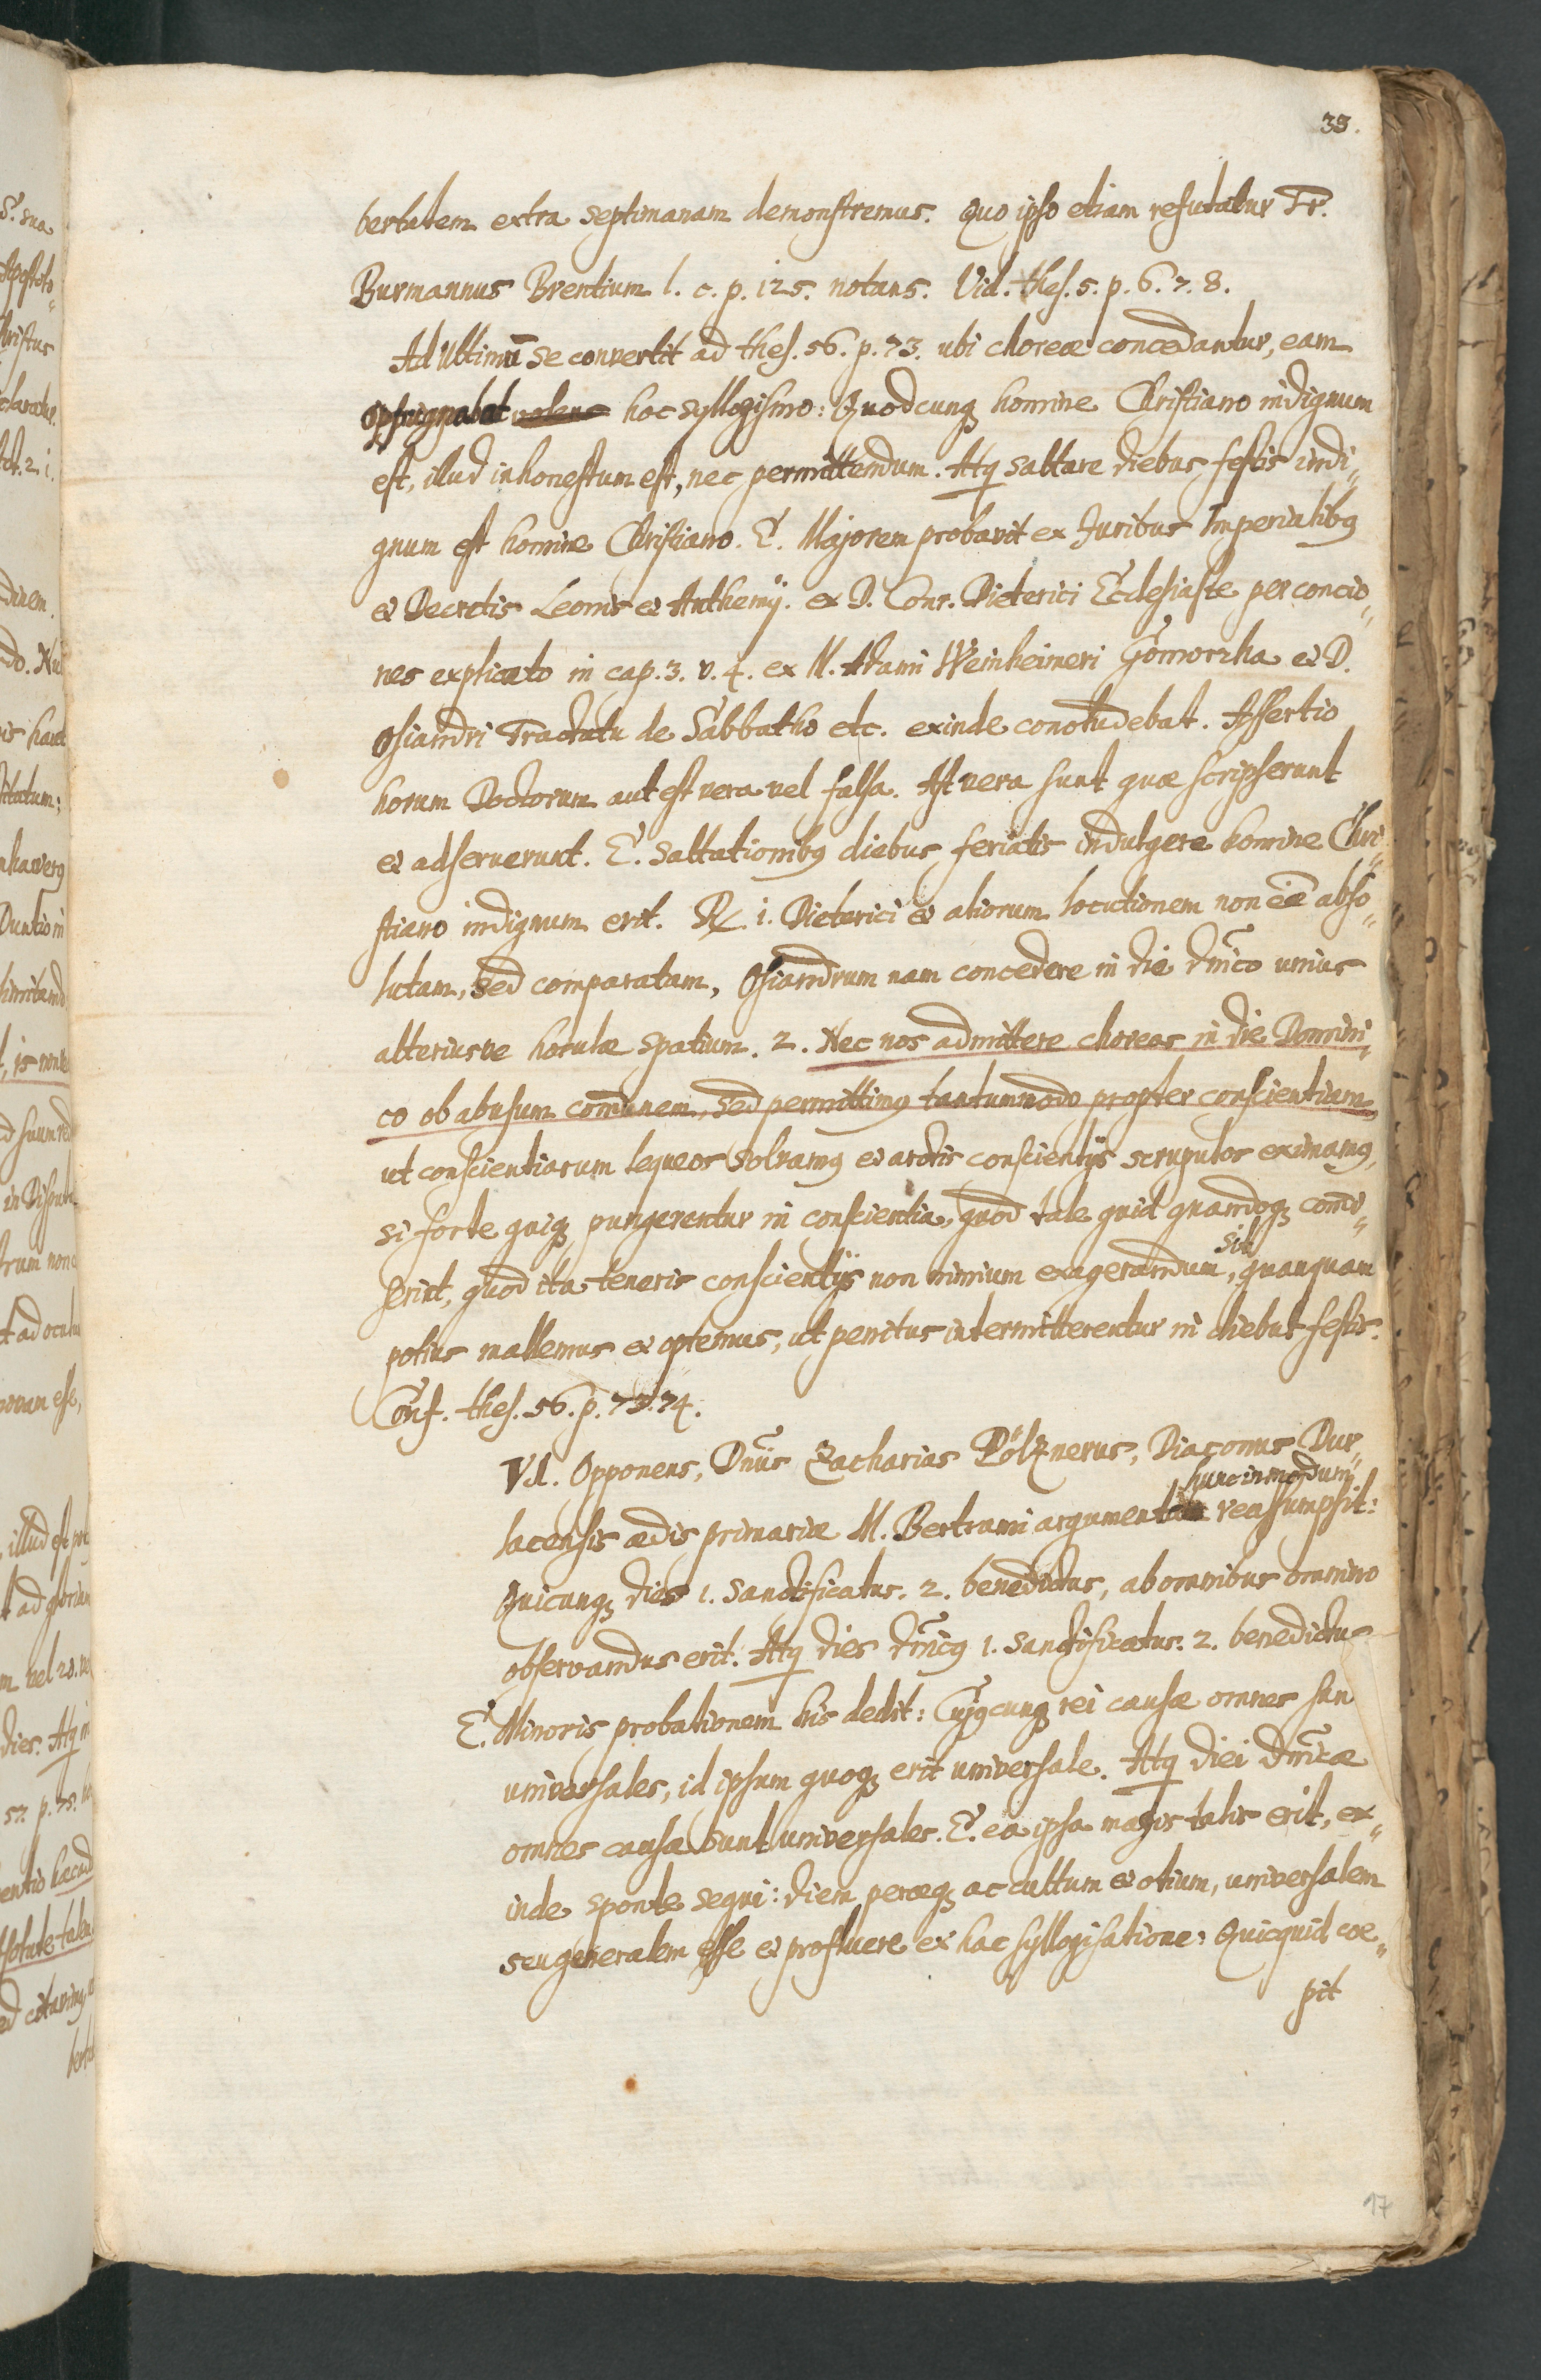 33.
bertatem extra septimanam demonstremus. Quo ipso etiam refutatur Fr.
Burmannus Brentium l. c. p. 125. notans. Vid. thes. 5. p. 6. 7. 8.
Ad Ultimū se convertit ad thes. 56. p. 73. ubi choreæ concedantur, eam
oppugnabat hoc syllogismo: Quodcunqꝫ homine Christiano indignum
est, illud inhonestum est, nec permittendum. Atq saltare diebus festis indi„
gnum est homine Christiano. E. Majorem probavit ex Juribus Imperialibꝰ
et Decretis Leonis et Anthemij. ex D. Conr. Dieterici Ecclesiaste per concio„
nes explicato in cap. 3. v. 4. ex M. Adami Weinheimeri Gomorrha et D.
Osiandri Tractatu de Sabbatho etc. exinde concludebat. Assertio
horum Doctorum aut est vera vel falsa. Ast vera sunt quæ scripserunt
et adseruerunt. E. saltationibꝰ diebus feriatis indulgere homine Chri„
stiano indignum erit. R/. 1. Dieterici et aliorum locutionem non eē abso„
lutam, sed comparatam, Osiandrum nam concedere in die dnĩco unius
alteriusve horulæ spatium. 2. Nec nos admittere choreas in die Domini„
co ob abusum com̄unem, sed permittimꝰ tantummodo propter conscientiam,
ut conscientiarum laqueos solvamꝰ et arctis conscientijs scrupulos eximamꝰ,
si forte quiqꝫ pungerentur in conscientia, quod tale quid quandoqꝫ com̄i„
serint, quod ita teneris conscientijs non nimium exagerandum, quanquam
sit
potius mallemus et optemus, ut penitus intermitterentur in diebus festis.
Conf. thes. 56. p. 73. 74.
VI. Opponens, Dnũs Zacharias Pölznerus, Diaconus Dur„
lacensis ædis primariæ M. Bertrami argumentum reassumpsit:
hunc in modum
Quicunqꝫ dies 1. sanctificatus. 2. benedictus, ab omnibus omnino
observandus erit. Atq dies dnĩcꝰ 1. sanctificatus. 2. benedictus
E. Minoris probationem his dedit: Cujꝰcunqꝫ rei causæ omnes sun
universales, id ipsum quoqꝫ erit universale. Atq diei dnĩcæ
omnes causæ sunt universales. E. ea ipsa magis talis erit, ex„
inde sponte sequi: diem peræqꝫ ac cultum et otium, universalem
seu generalem esse et profluere ex hac syllogisatione: Quicquid coe„
pit
17